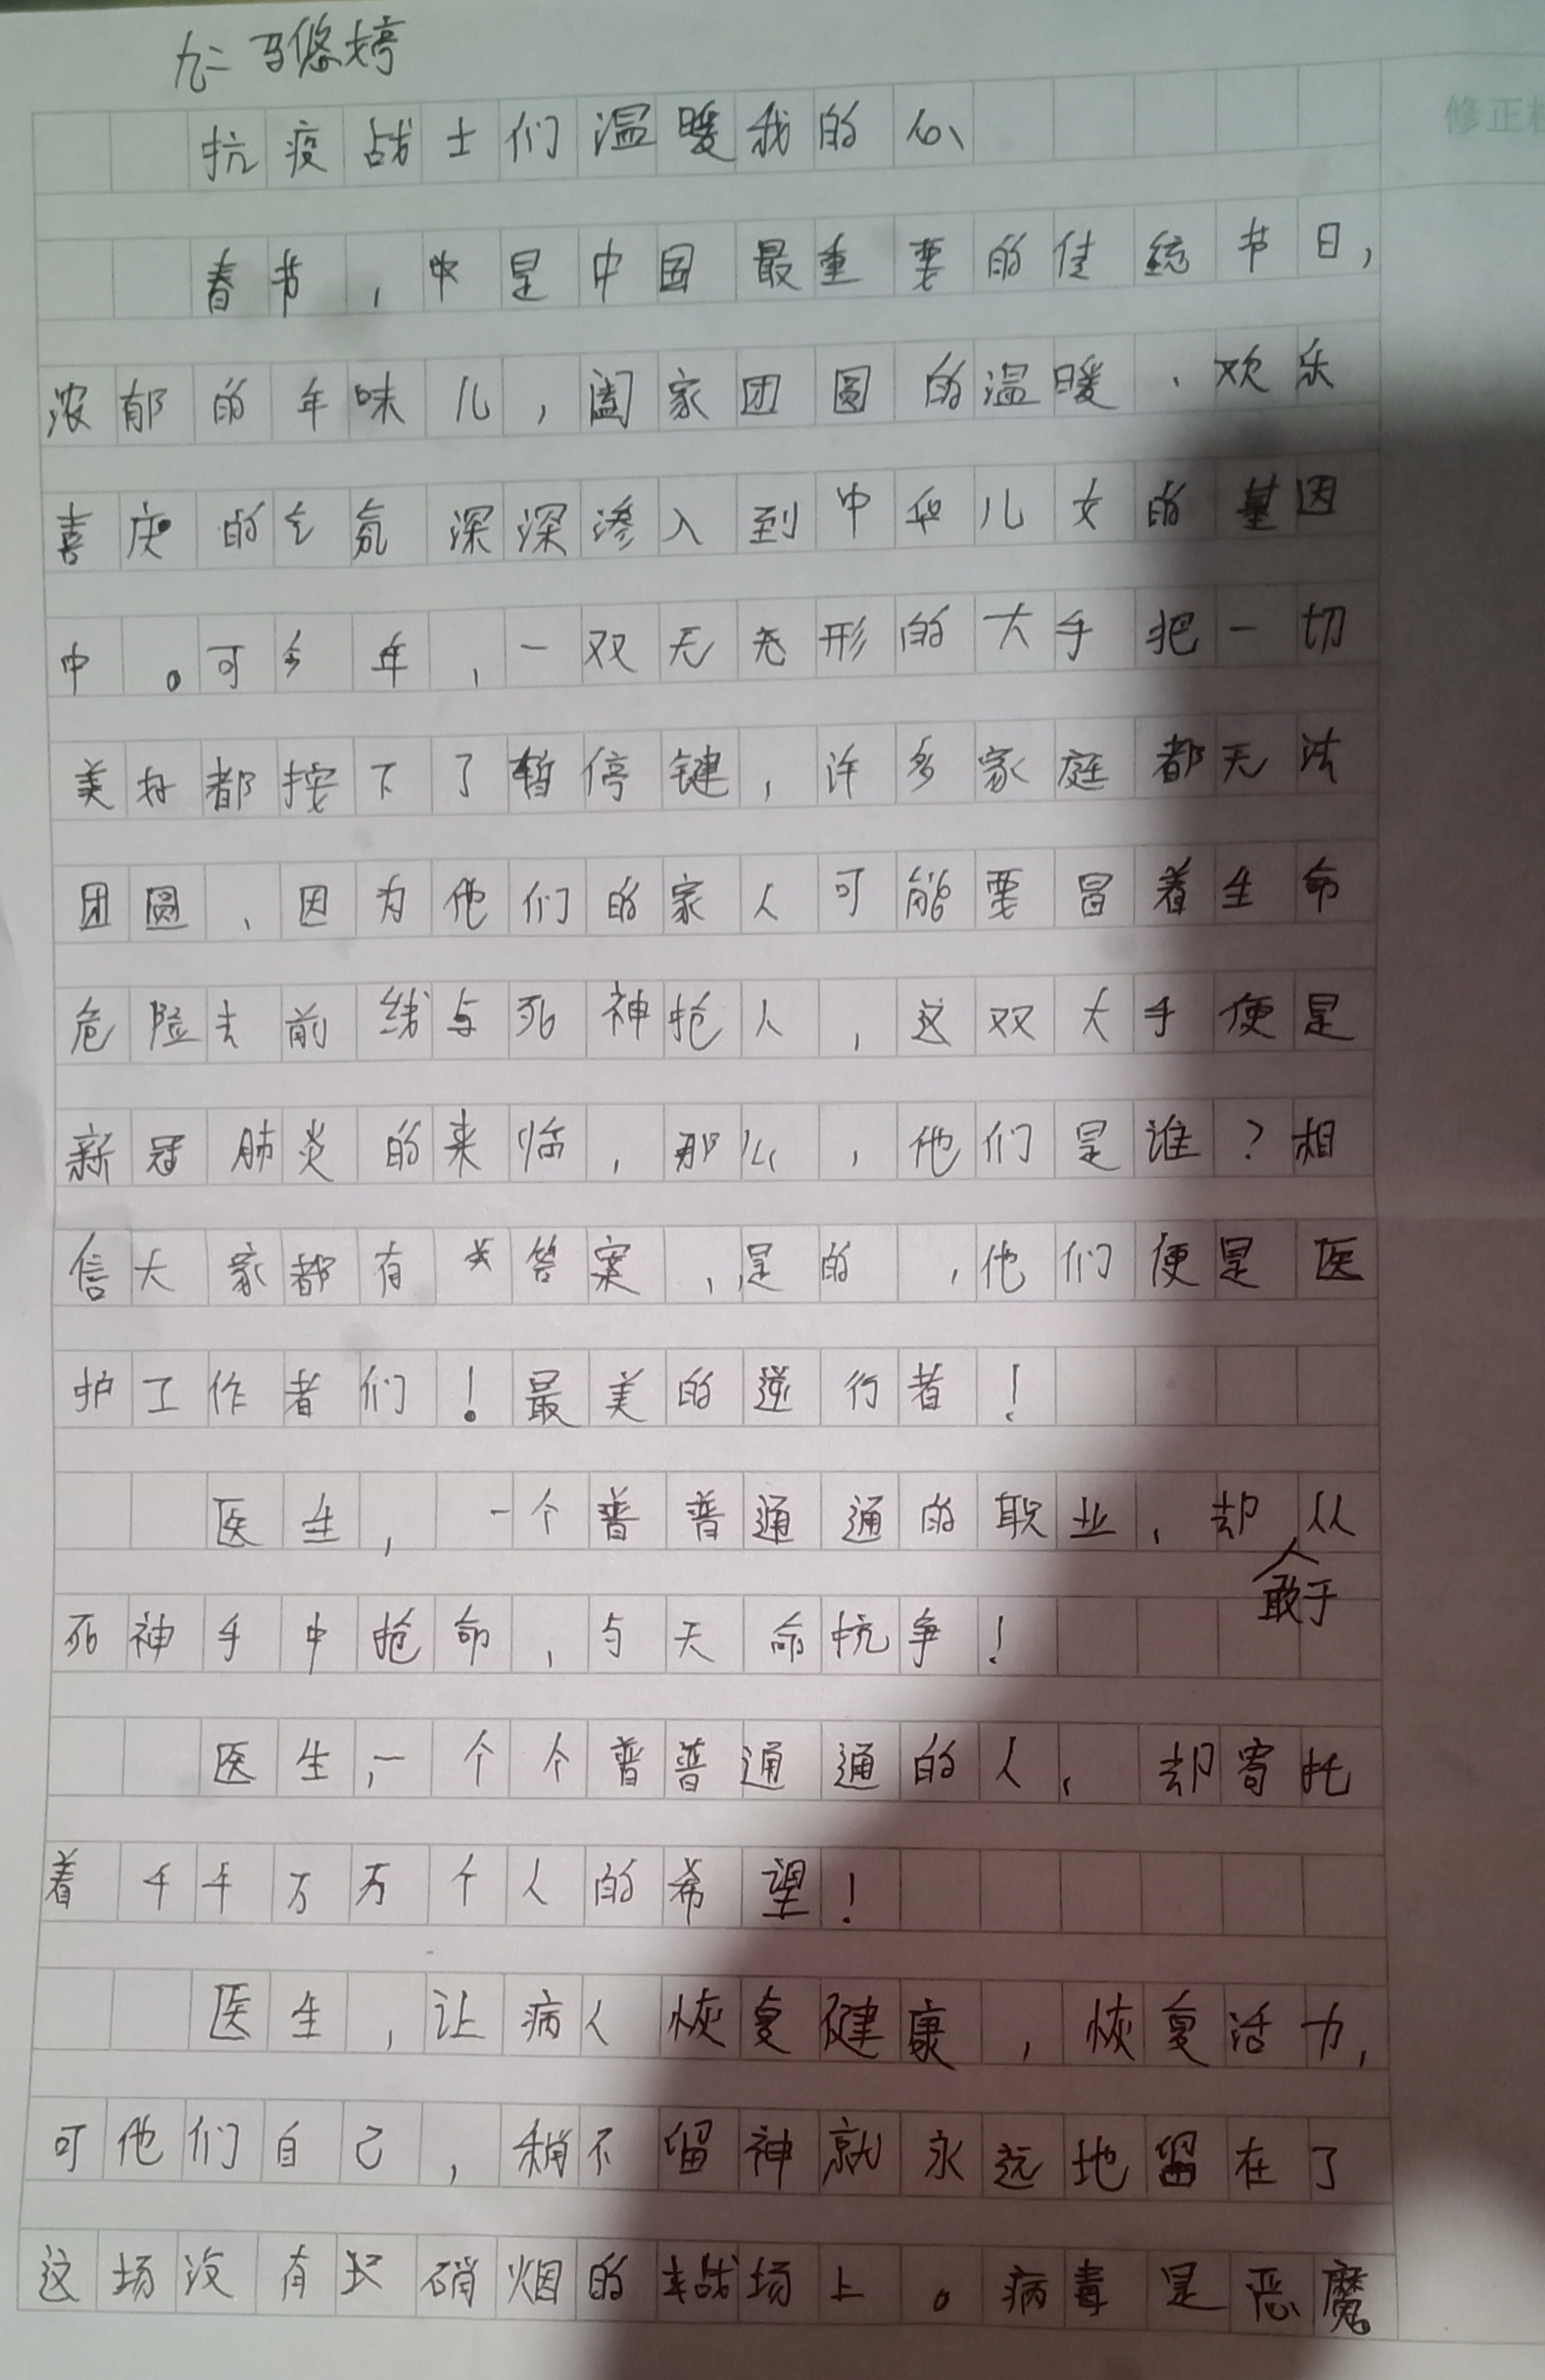 九二 马悠婷
抗疫战士们温暖我的心
春节，是中国最重要的佳统节日，
浓郁的年味儿，阖家团圆的温暖、欢乐
喜庆的气氛深深渗入到中华儿女的基因
中。可今年，一双无形的大手把一切
美好都按下了暂停键，许多家庭都无法
团圆、因为他们的家人可能要冒着生命
危险去前线与死神抢人，这双大手便是
新冠肺炎的来临，那么，他们是谁？相
信大家都有答案，是的，他们便是医
护工作者们！最美的逆行者！
医生，一个普普通通的职业，却敢于从
死神手中抢命，与天命抗争！
医生，一个个普普通通的人，却寄托
着千千万万个人的希望！
医生，让病人恢复健康，恢复活力，
可他们自己，稍不留神就永远地留在了
这场没有硝烟的战场上。病毒是恶魔
修正